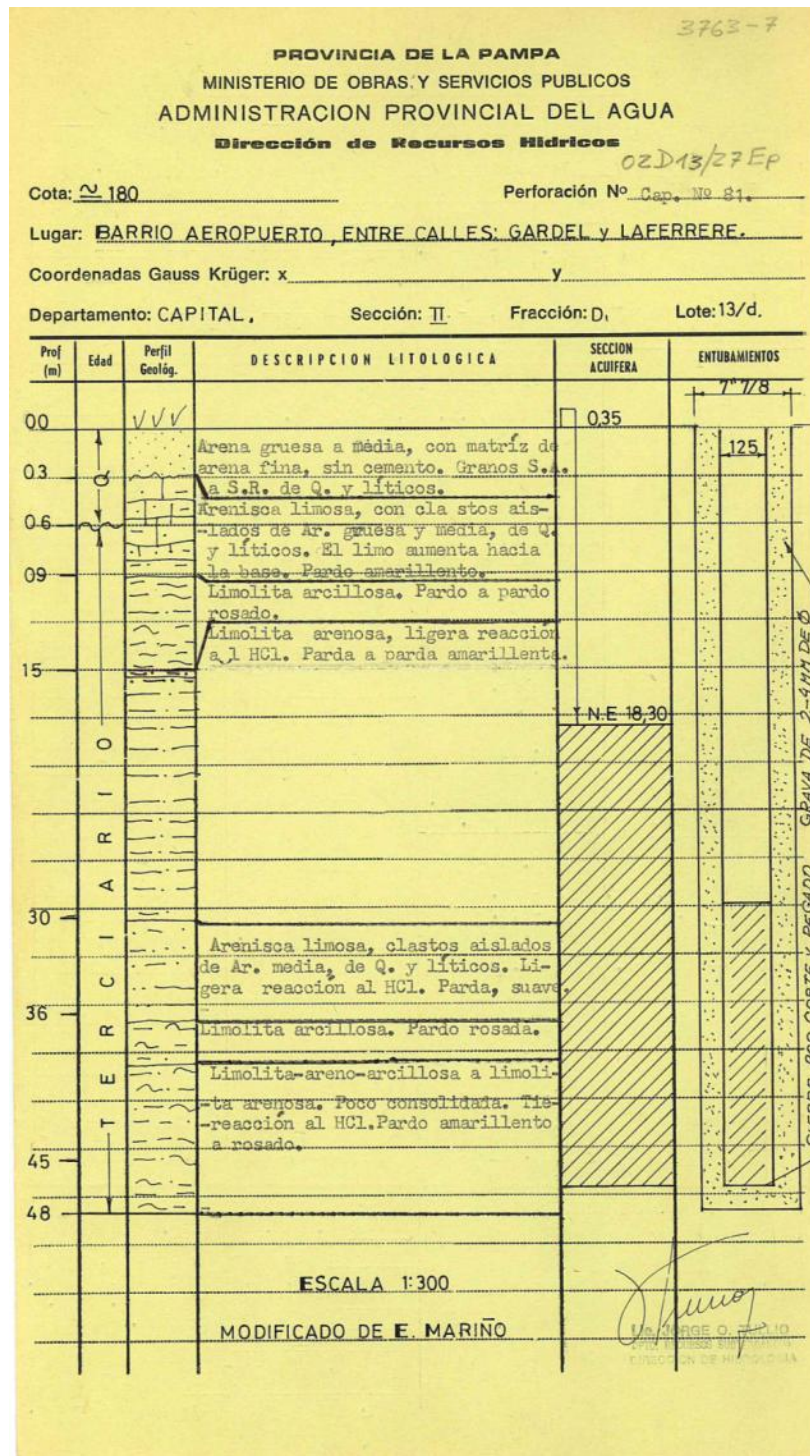 3763-7
PROVINCIA DE LA PAMPA
MINISTERIO DE OBRAS Y SERVICIOS PUBLICOS
ADMINISTRACION PROVINCIAL DEL AGUA
Dirección de Recursos Hídricos
02D13/27Ep
Cota: ≃ 180 Perforación Nº Cap. Nº 81.
Lugar: BARRIO AEROPUERTO, ENTRE CALLES: GARDEL y LAFERRERE.
Coordenadas Gauss Krüger: x y
Departamento: CAPITAL. Sección: II Fracción: D. Lote: 13/d.
Prof (m) Edad Perfil Geológ. DESCRIPCION LITOLOGICA SECCION ACUIFERA ENTUBAMIENTOS
7" 7/8
00 0,35
125
Arena gruesa a média, con matríz de
03 arena fina, sin cemento. Granos S.A.
Q
a S.R. de Q. y líticos.
Arenisca limosa, con cla stos ais-
06 lados de Ar. gruesa y media, de Q.
y líticos. El limo aumenta hacia
la base. Pardo amarillento.
09
Limolita arcillosa. Pardo a pardo
rosado.
Limolita arenosa, ligera reacción
a l HCl. Parda a parda amarillenta.
15
N.E 18,30
TERCIARIO
GRAVA DE 2-4MM DE Ø
30
Arenisca limosa, clastos aislados
de Ar. media, de Q. y líticos. Li-
gera reacción al HCl. Parda, suave.
36
Limolita arcillosa. Pardo rosada.
Limolita-areno-arcillosa a limoli-
-ta arenosa. Poco consolidada. Tie-
-reacción al HCl.Pardo amarillento
a rosado.
45
CORTE Y PEGADO
48
ESCALA 1:300
MODIFICADO DE E. MARIÑO
Lic. JORGE O.
DIRECCION DE